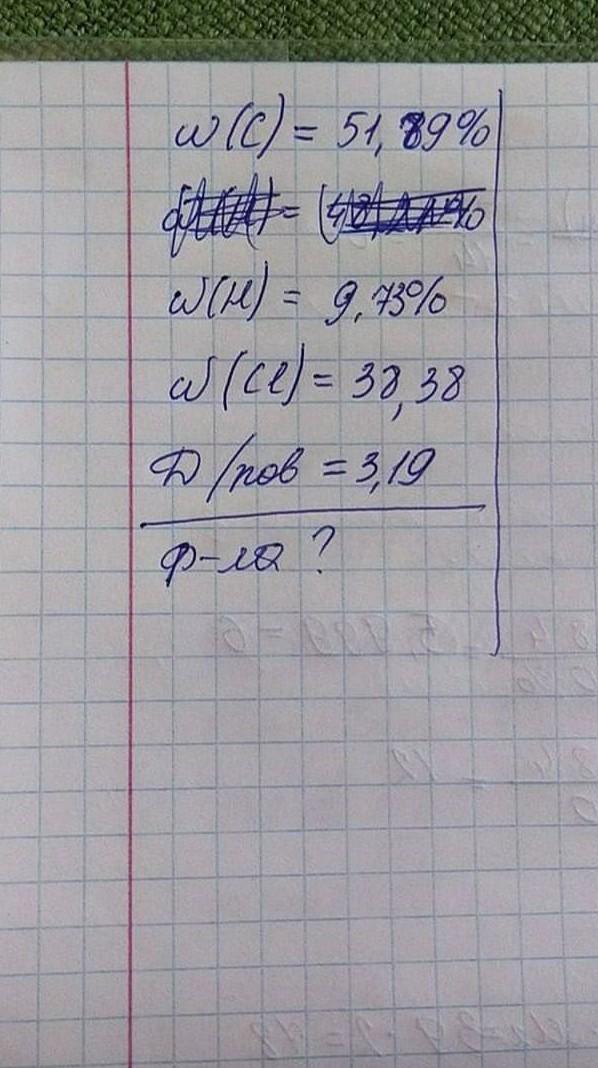 w(C) = 51,89%
w(H) = 9,73%
w(Cl) = 38,38
D/пов = 3,19
ф-ла ?